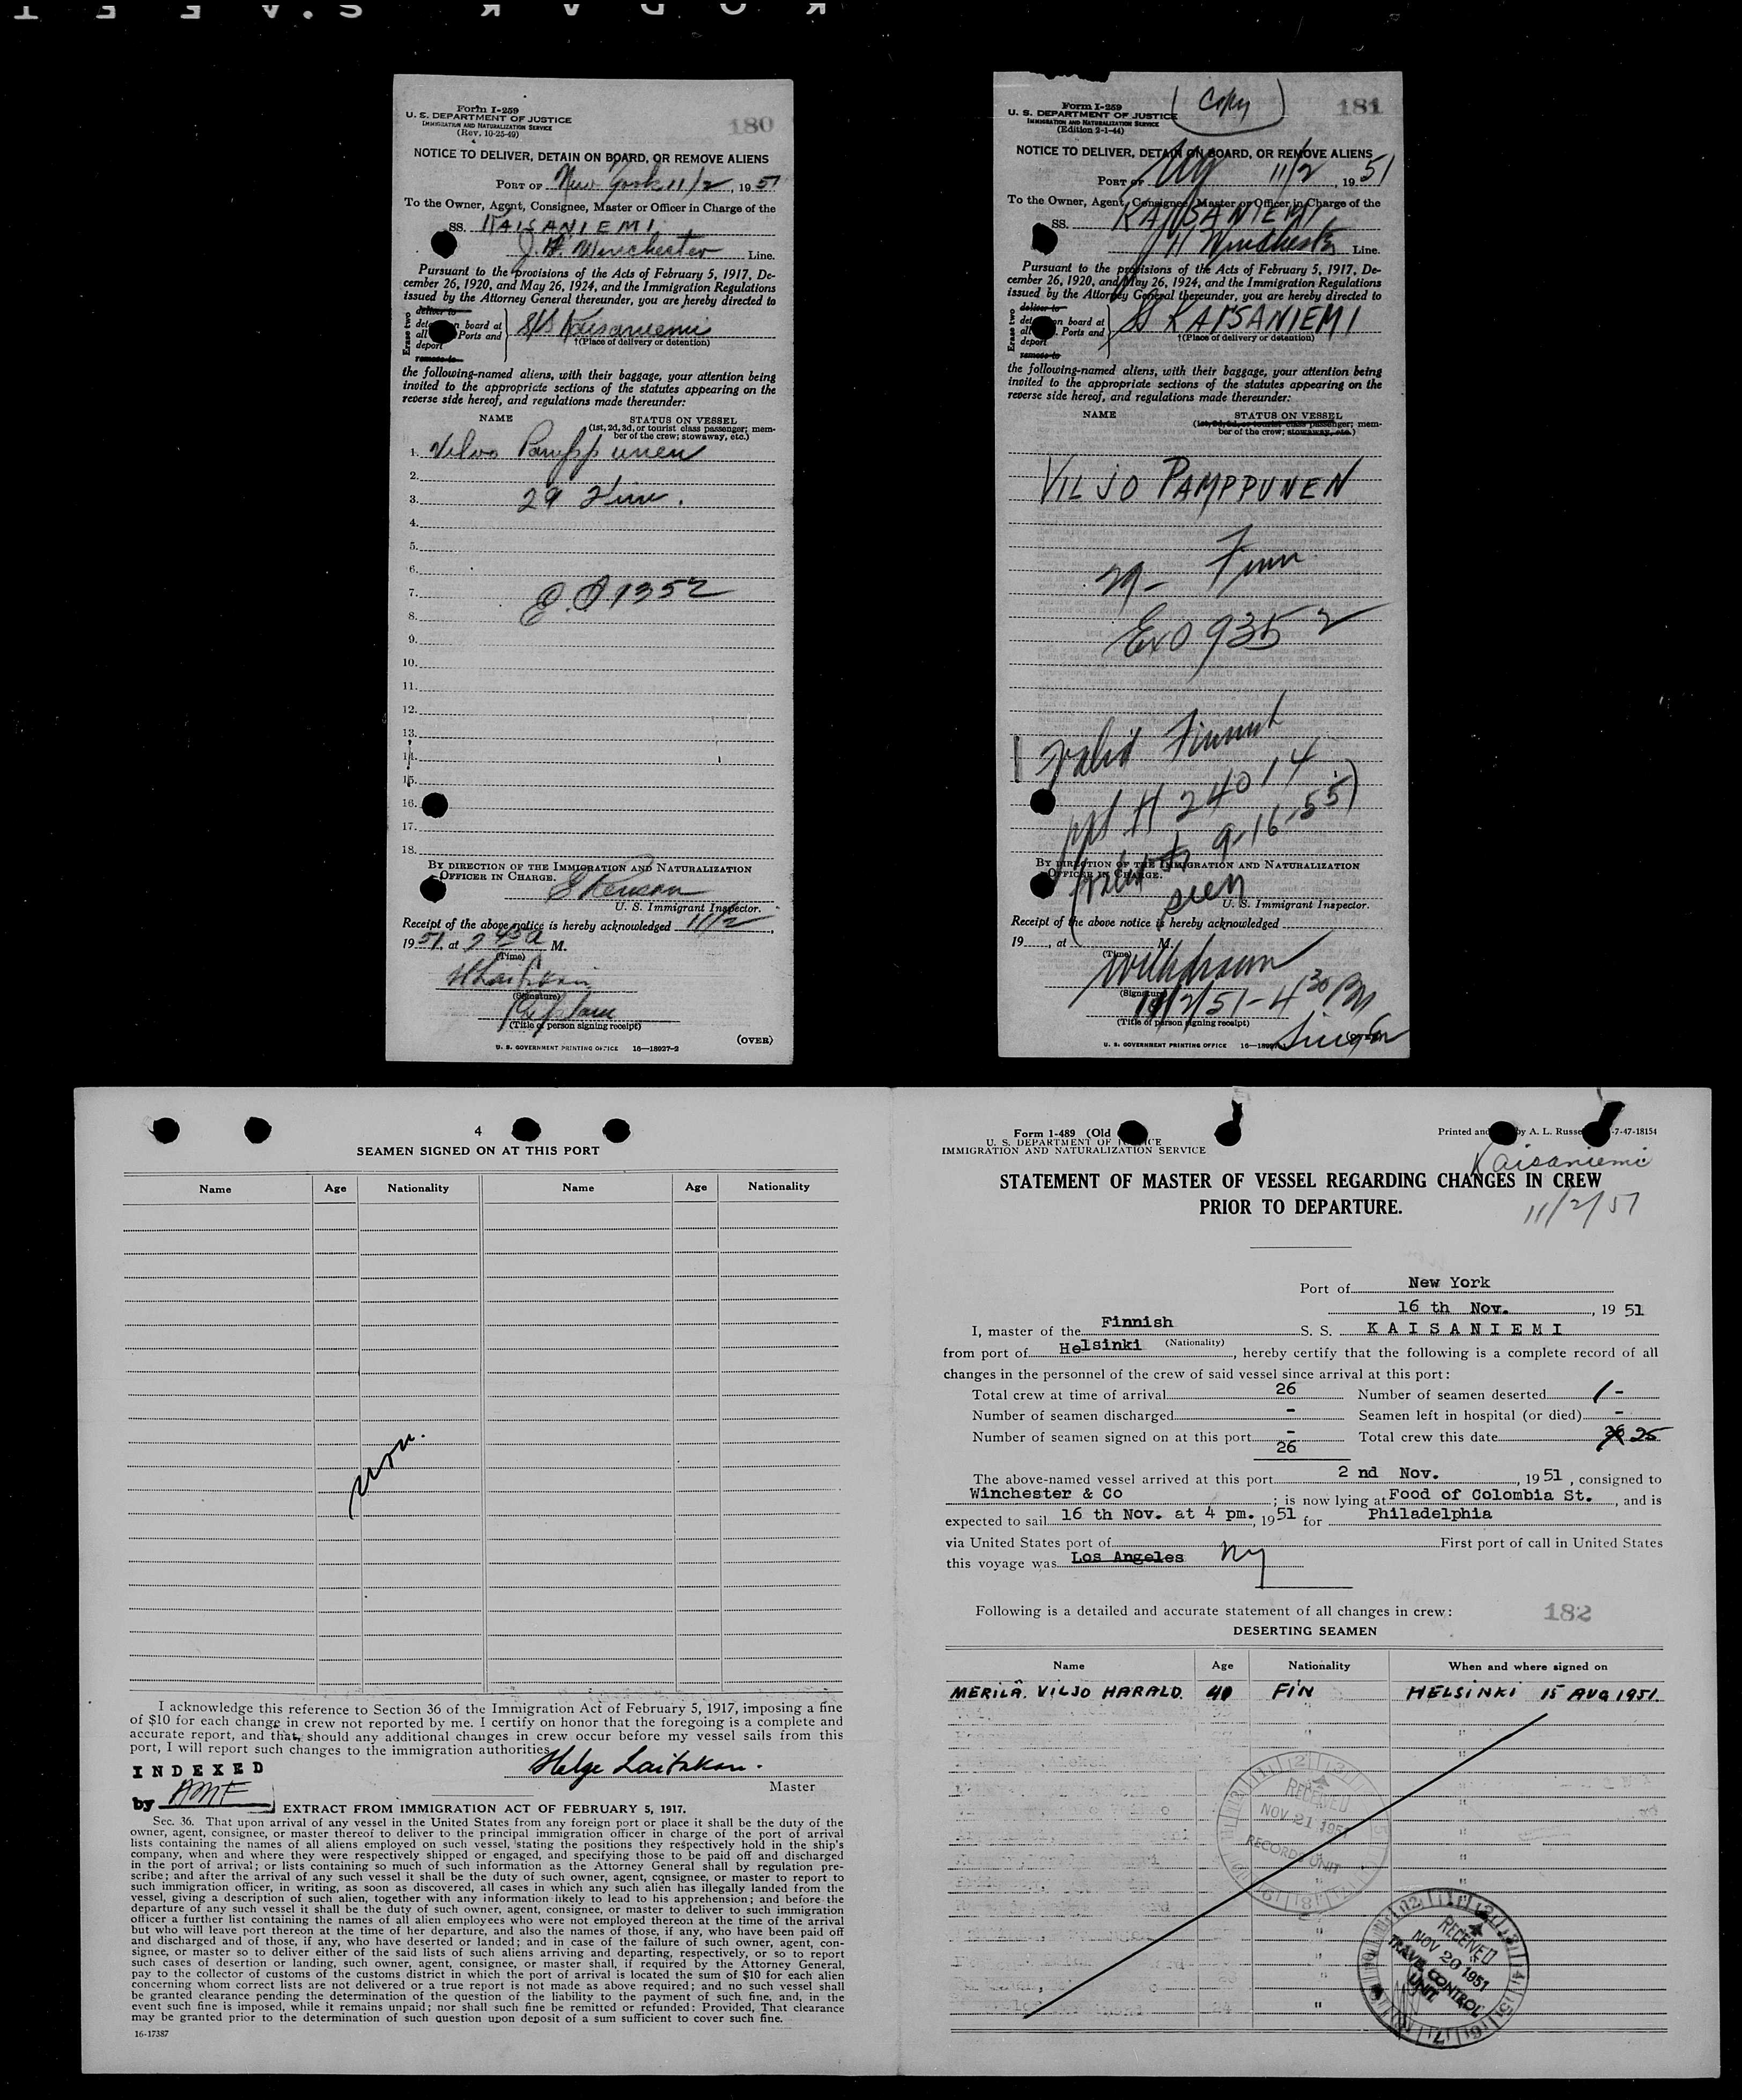 Form I-259
U. S. DEPARTMENT OF JUSTICE
IMMIGRATION AND NATURALIZATION SERVICE
(Rev. 10-25-49)
180
NOTICE TO DELIVER, DETAIN ON BOARD, OR REMOVE ALIENS
PORT OF New York 11/2, 1951
To the Owner, Agent, Consignee, Master or Officer in Charge of the
SS. KAISANIEMI
J. H. Winchester Line.
Pursuant to the provisions of the Acts of February 5, 1917, De-
cember 26, 1920, and May 26, 1924, and the Immigration Regulations
issued by the Attorney General thereunder, you are hereby directed to
Erase two
deliver to
on board at
all Ports and
deport
remove to
S/S Kaisaniemi
†(Place of delivery or detention)
the following-named aliens, with their baggage, your attention being
invited to the appropriate sections of the statutes appearing on the
reverse side hereof, and regulations made thereunder:
NAME STATUS ON VESSEL
(1st, 2d, 3d, or tourist class passenger; mem-
ber of the crew; stowaway, etc.)
1. Pamppunen
2.
3. 29 Finn.
4.
5.
6.
7.
8.
9.
10.
11.
12.
13.
14.
15.
16.
17.
18.
BY DIRECTION OF THE IMMIGRATION AND NATURALIZATION
OFFICER IN CHARGE.
U. S. Immigrant Inspector.
Receipt of the above notice is hereby acknowledged 11/2,
1951, at M.
(Time)
(Signature)
(Title of person signing receipt)
(OVER)
U. S. GOVERNMENT PRINTING OFFICE 16—18927-2
Form I-259
U. S. DEPARTMENT OF JUSTICE
IMMIGRATION AND NATURALIZATION SERVICE
(Edition 2-1-44)
Copy
181
NOTICE TO DELIVER, DETAIN ON BOARD, OR REMOVE ALIENS
PORT OF NY 11/2, 1951
To the Owner, Agent, Consignee, Master or Officer in Charge of the
SS. KAISANIEMI
J H Winchester Line.
Pursuant to the provisions of the Acts of February 5, 1917, De-
cember 26, 1920, and May 26, 1924, and the Immigration Regulations
issued by the Attorney General thereunder, you are hereby directed to
Erase two
deliver to
on board at
all Ports and
deport
remove to
SS KAISANIEMI
†(Place of delivery or detention)
the following-named aliens, with their baggage, your attention being
invited to the appropriate sections of the statutes appearing on the
reverse side hereof, and regulations made thereunder:
NAME STATUS ON VESSEL
(1st, 2d, 3d, or tourist class passenger; mem-
ber of the crew; stowaway, etc.)
VILJO PAMPPUNEN
29- Finn
ExO 9352
Valid Finnish
ppt H 24014
(valid to 9-16-55)
seen
BY DIRECTION OF THE IMMIGRATION AND NATURALIZATION
OFFICER IN CHARGE.
U. S. Immigrant Inspector.
Receipt of the above notice is hereby acknowledged
19 , at M.
(Time)
Withdrawn
(Signature)
11/2/51-4 30 PM
(Title of person signing receipt)
U. S. GOVERNMENT PRINTING OFFICE
4
SEAMEN SIGNED ON AT THIS PORT
Name Age Nationality Name Age Nationality
non.
I acknowledge this reference to Section 36 of the Immigration Act of February 5, 1917, imposing a fine
of $10 for each change in crew not reported by me. I certify on honor that the foregoing is a complete and
accurate report, and that, should any additional changes in crew occur before my vessel sails from this
port, I will report such changes to the immigration authorities.
INDEXED
by AMF
Master
EXTRACT FROM IMMIGRATION ACT OF FEBRUARY 5, 1917.
Sec. 36. That upon arrival of any vessel in the United States from any foreign port or place it shall be the duty of the
owner, agent, consignee, or master thereof to deliver to the principal immigration officer in charge of the port of arrival
lists containing the names of all aliens employed on such vessel, stating the positions they respectively hold in the ship's
company, when and where they were respectively shipped or engaged, and specifying those to be paid off and discharged
in the port of arrival; or lists containing so much of such information as the Attorney General shall by regulation pre-
scribe; and after the arrival of any such vessel it shall be the duty of such owner, agent, consignee, or master to report to
such immigration officer, in writing, as soon as discovered, all cases in which any such alien has illegally landed from the
vessel, giving a description of such alien, together with any information likely to lead to his apprehension; and before the
departure of any such vessel it shall be the duty of such owner, agent, consignee, or master to deliver to such immigration
officer a further list containing the names of all alien employees who were not employed thereon at the time of the arrival
but who will leave port thereon at the time of her departure, and also the names of those, if any, who have been paid off
and discharged and of those, if any, who have deserted or landed; and in case of the failure of such owner, agent, con-
signee, or master so to deliver either of the said lists of such aliens arriving and departing, respectively, or so to report
such cases of desertion or landing, such owner, agent, consignee, or master shall, if required by the Attorney General,
pay to the collector of customs of the customs district in which the port of arrival is located the sum of $10 for each alien
concerning whom correct lists are not delivered or a true report is not made as above required; and no such vessel shall
be granted clearance pending the determination of the question of the liability to the payment of such fine, and, in the
event such fine is imposed, while it remains unpaid; nor shall such fine be remitted or refunded: Provided, That clearance
may be granted prior to the determination of such question upon deposit of a sum sufficient to cover such fine.
16-17387
Form 1-489 (Old
U. S. DEPARTMENT OF JUSTICE
IMMIGRATION AND NATURALIZATION SERVICE
Printed and by A. L. Russe -7-47-18154
Kaisaniemi
STATEMENT OF MASTER OF VESSEL REGARDING CHANGES IN CREW
PRIOR TO DEPARTURE.
11/2/51
Port of New York
16 th Nov. , 19 51
I, master of the Finnish S. S. KAISANIEMI
(Nationality)
from port of Helsinki, hereby certify that the following is a complete record of all
changes in the personnel of the crew of said vessel since arrival at this port:
Total crew at time of arrival 26 Number of seamen deserted 1 -
Number of seamen discharged - Seamen left in hospital (or died) -
Number of seamen signed on at this port - Total crew this date 26 25
26
The above-named vessel arrived at this port 2 nd Nov. , 19 51 , consigned to
Winchester & Co ; is now lying at Food of Colombia St. , and is
expected to sail 16 th Nov. at 4 pm. , 19 51 for Philadelphia
via United States port of First port of call in United States
this voyage was Los Angeles NY
Following is a detailed and accurate statement of all changes in crew: 182
DESERTING SEAMEN
Name Age Nationality When and where signed on
MERILÄ. VILJO HARALD. 40 FIN HELSINKI 15 AUG 1951.
RECEIVED
NOV 21 1951
RECORDS UNIT
RECEIVED
NOV 20 1951
TRAVEL CONTROL
UNIT